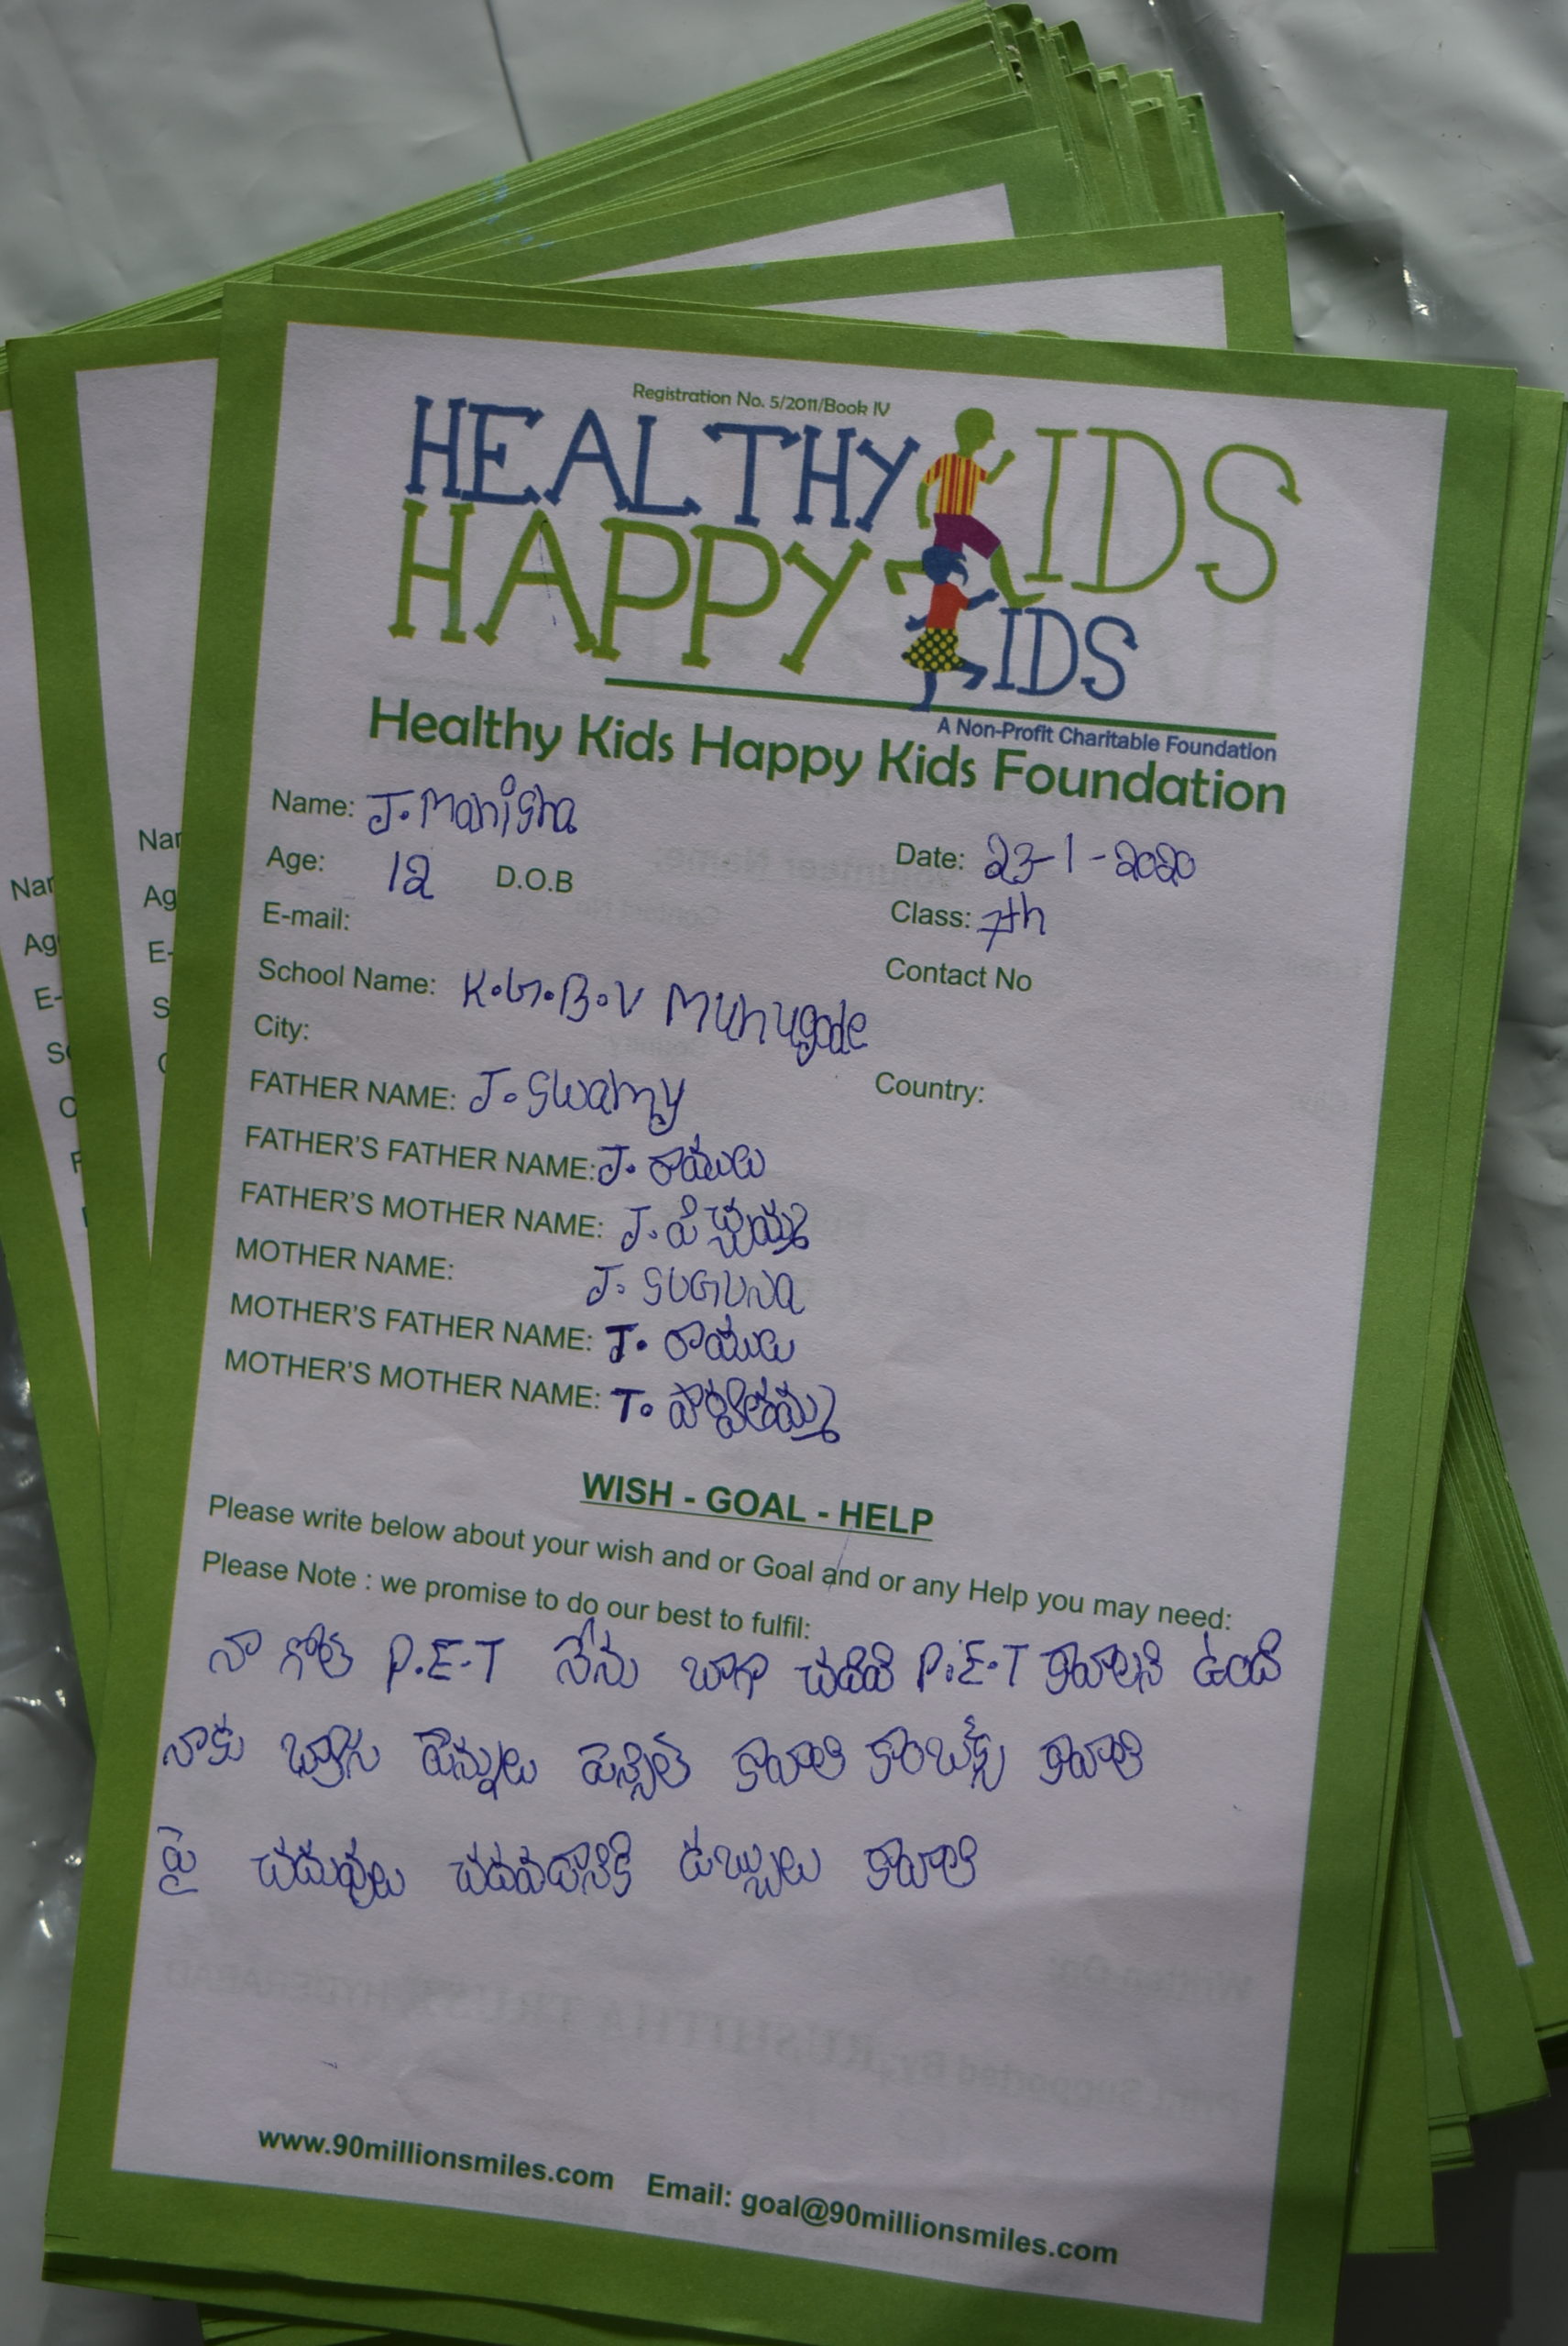 Registration No. 5/2011/Book IV
HEALTHY KIDS
HAPPY KIDS
A Non-Profit Charitable Foundation
Healthy Kids Happy Kids Foundation
Name: J. Manisha
Date: 23-1-2020
Age: 12 D.O.B
Class: 7th
E-mail:
Contact No
School Name: K.G.B.V Munugode
City:
Country:
FATHER NAME: J. Swamy
FATHER'S FATHER NAME: J. రాములు
FATHER'S MOTHER NAME: J. పిచ్చమ్మ
MOTHER NAME: J. SUGUNA
MOTHER'S FATHER NAME: T. రాములు
MOTHER'S MOTHER NAME: T. పార్వతమ్మ
WISH - GOAL - HELP
Please write below about your wish and or Goal and or any Help you may need:
Please Note : we promise to do our best to fulfil:
నా గోల్ P.E.T నేను బాగా చదివి P.E.T కావాలని ఉంది
నాకు పెన్నులు పెన్సిల్ కావాలి కావాలి
పై చదువులు చదవడానికి డబ్బులు కావాలి
www.90millionsmiles.com Email: goal@90millionsmiles.com